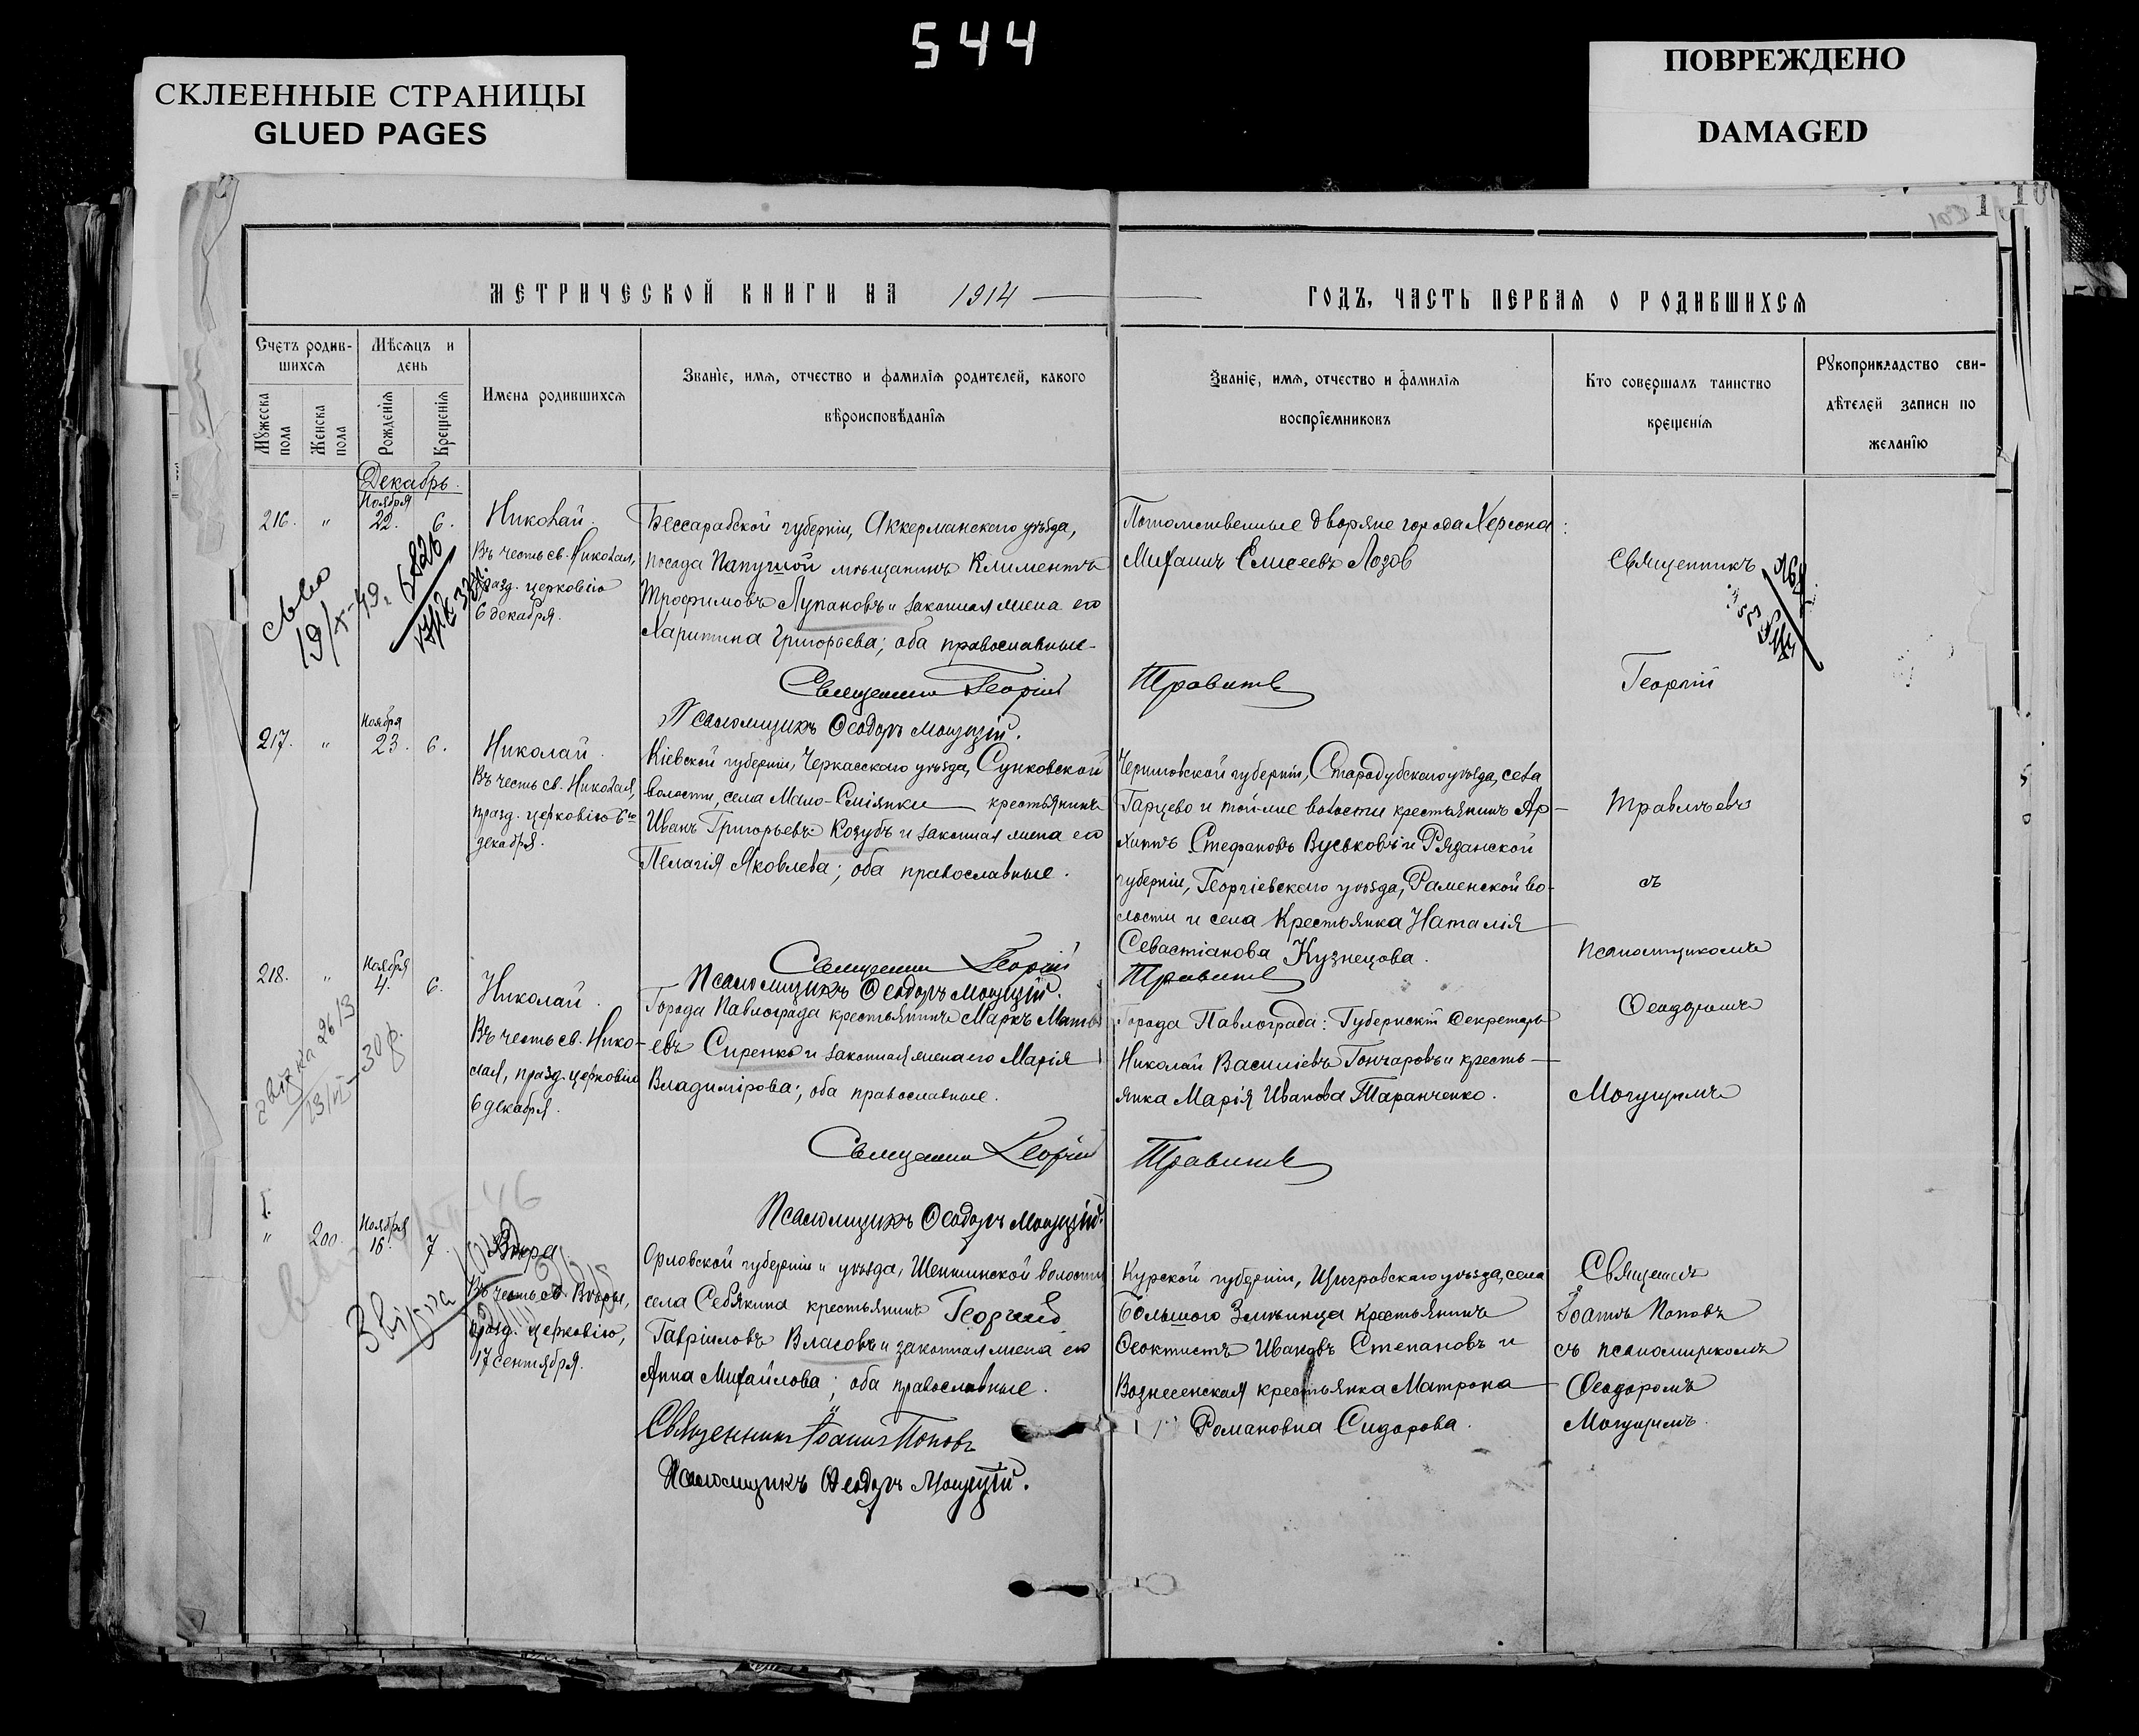 544
СКЛЕЕННЫЕ СТРАНИЦЫ
GLUED PAGES
ПОВРЕЖДЕНО
DAMAGED
МЕТРИЧЕСКОЙ КНИГИ НА 1914 ГОДЪ, ЧАСТЬ ПЕРВАЯ О РОДИВШИХСЯ
Счетъ родив-
шихся
Мѣсяцъ и
день
Мужеска пола
Женска пола
Рожденія
Крещенія
Имена родившихся
Званіе, имя, отчество и фамилія родителей, какого
вѣроисповѣданія
Званіе, имя, отчество и фамилія
воспріемниковъ
Кто совершалъ таинство
крещенія
Рукоприкладство сви-
дѣтелей записи по
желанію
Декабрь.
216. " Ноября 22. 6.
Николай.
Въ честь св. Николая,
празд. церковію
6 декабря.
Бессарабской губерніи, Аккерманскаго уѣзда,
посада Папушой мѣщанинъ Климентъ
Трофимовъ Лупановъ и законная жена его
Харитина Григорьева; оба православные
Священникъ Георгій
Псаломщикъ Ѳеодоръ
Потомственные дворяне города Херсона:
Михаилъ Елисеевъ Лозов
Священникъ
Георгій
217. " Ноября 23. 6.
Николай.
Въ честь св. Николая,
празд. церковію 6го
декабря.
Кіевской губерніи, Черкасскаго уѣзда, Сунковской
волости, села Мало-Смілянки крестьянинъ
Иванъ Григорьевъ Козубъ и законная жена его
Пелагія Яковлева; оба православные.
Священникъ Георгій
Псаломщикъ Ѳеодоръ
Черниговской губерніи, Стародубскаго уѣзда, села
Гарцево и той-же волости крестьянинъ Ар-
хипъ Стефановъ Вуськовъ и Рязанской
губерніи, Георгіевскаго уѣзда, Раменской во-
лости и села крестьянка Наталія
Севастіанова Кузнецова.
съ
псаломщикомъ
Ѳеодоромъ
218. " Ноября 4. 6.
Николай.
Въ честь св. Нико-
лая, празд. церковію
6 декабря.
Города Павлограда крестьянинъ Маркъ Матвѣ
евъ Сиренко и законная жена его Марія
Владимірова; оба православные.
Священникъ Георгій
Псаломщикъ Ѳеодоръ
Города Павлограда: Губернскій Секретарь
Николай Василіевъ Гончаровъ и кресть-
янка Марія Иванова Таранченко.
" 200. Ноября 16. 7.
Вѣра.
Въ честь св. Вѣры,
празд. церковію,
17 сентября.
Орловской губерніи и уѣзда, волости
села Себякина крестьянинъ Георгій
Гавріиловъ Власовъ и законная жена его
Анна Михайлова; оба православные.
Священникъ Іоаннъ Поповъ
Псаломщикъ Ѳеодоръ
Курской губерніи, Щигровскаго уѣзда, села
Большого Змѣинца крестьянинъ
Ѳеоктистъ Ивановъ Степановъ и
Вознесенская крестьянка Матрона
Романовна Сидорова.
Священникъ
Іоаннъ Поповъ
съ псаломщикомъ
Ѳеодоромъ